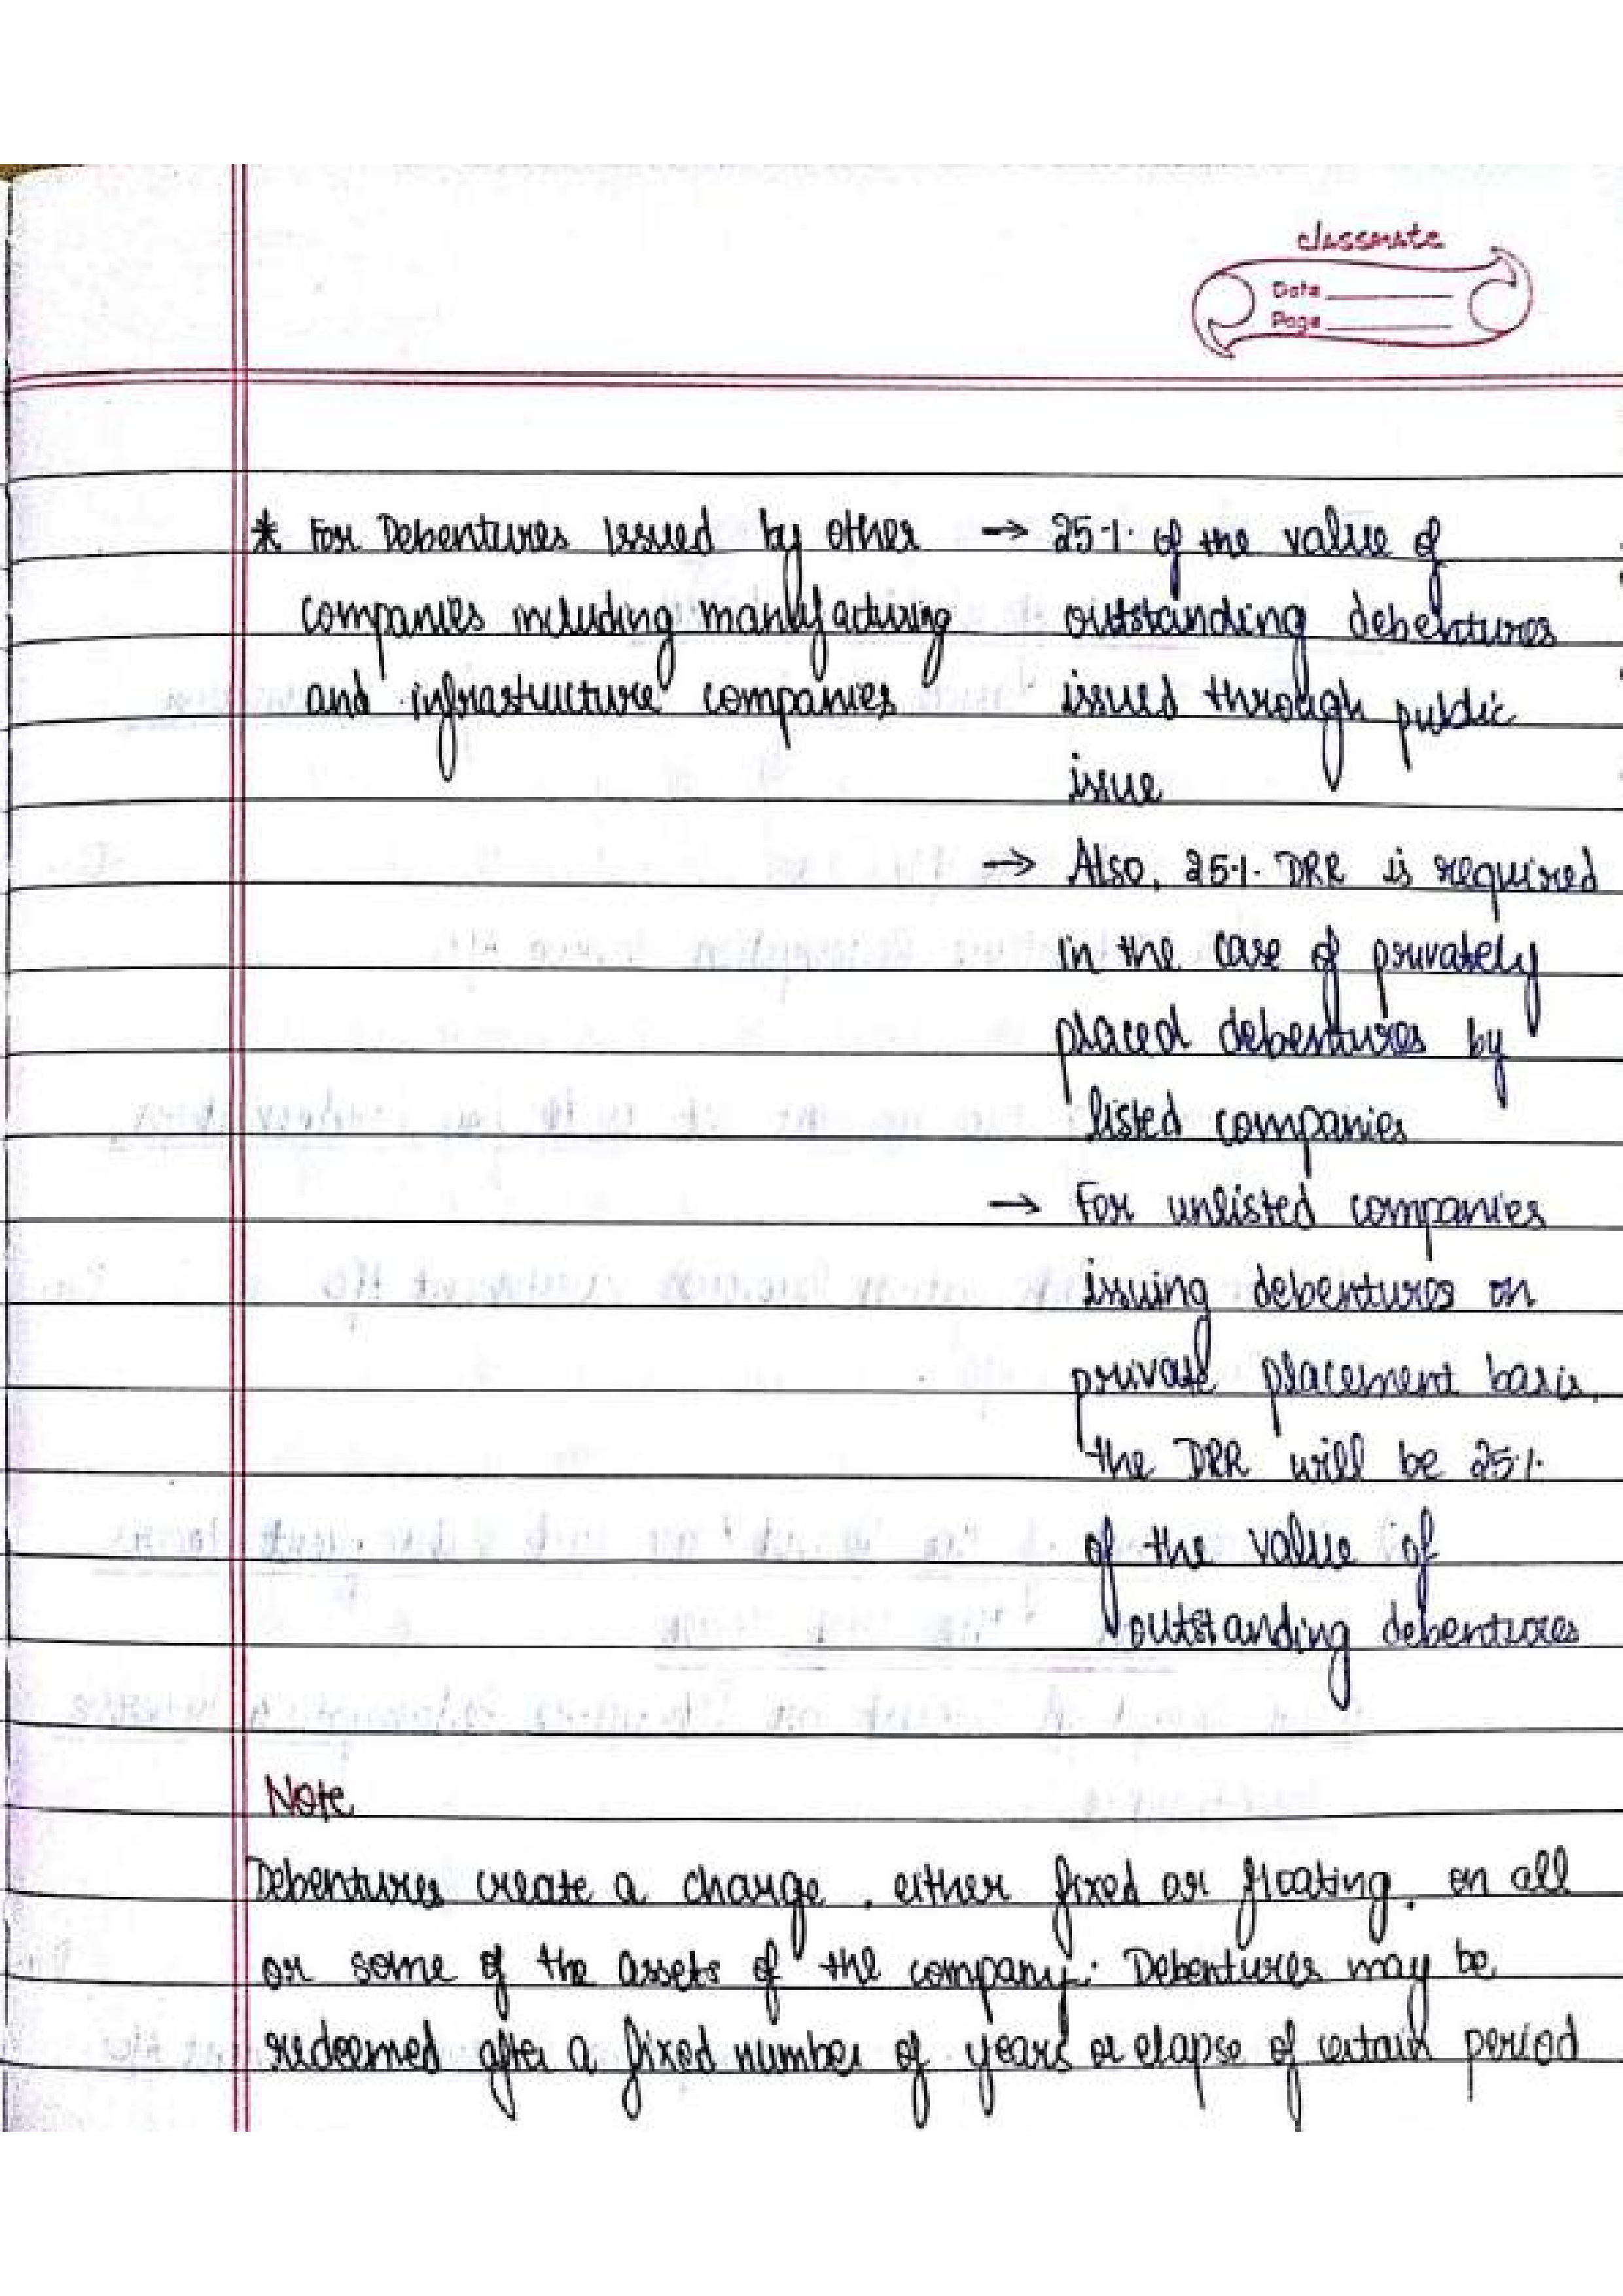 classmate
Date
Page
* For Debentures issued by other → 25% of the value of
companies including manufacturing outstanding debentures
and infrastructure companies issued through public
issue
→ Also, 25% DRR is required
in the case of privately
placed debentures by
listed companies
→ For unlisted companies
issuing debentures on
private placement basis,
the DRR will be 25%
of the value of
outstanding debentures
Note
Debentures create a charge, either fixed or floating, on all
or some of the assets of the company. Debentures may be
redeemed after a fixed number of years or elapse of certain period